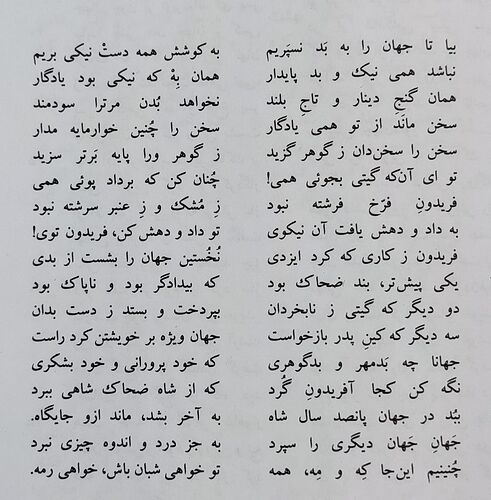 بیا تا جهان را به بَد نسپَریم به کوشش همه دستْ نیکی بریم
نباشد همی نیک و بد پایدار همان بِهْ که نیکی بود یادگار
همان گنجِ دینار و تاجِ بلند نخواهد بُدن مرترا سودمند
سخن مانَد از تو همی یادگار سخن را چُنین خوارمایه مدار
سخن را سخن‌دان ز گوهر گزید ز گوهر ورا پایه بَرتر سزید
تو ای آن‌که گیتی بجوئی همی! چُنان کن که برداد پوئی همی
فریدونِ فرّخ فرشته نبود زِ مُشک و زِ عنبر سرشته نبود
به داد و دهش یافت آن نیکوی تو داد و دهش کن، فریدون توی!
فریدون ز کاری که کرد ایزدی نُخُستین جهان را بشست از بدی
یکی پیش‌تر، بند ضحاک بود که بیدادگر بود و ناپاک بود
دو دیگر که گیتی ز نابخردان بپردخت و بستد ز دست بدان
سه دیگر که کینِ پدر بازخواست جهان ویژه بر خویشتن کرد راست
جهانا چه بَدمهر و بدگوهری که خود پرورانی و خود بشکری
نگه کن کجا آفریدونِ گُرد که از شاه ضحاک شاهی ببرد
ببُد در جهان پانصد سال شاه به آخر بشد، ماند ازو جایگاه.
جَهانِ جَهان دیگری را سپرد به جز درد و اندوه چیزی نبرد
چُنینیم این‌جا کِه و مِه، همه تو خواهی شبان باش، خواهی رمه.